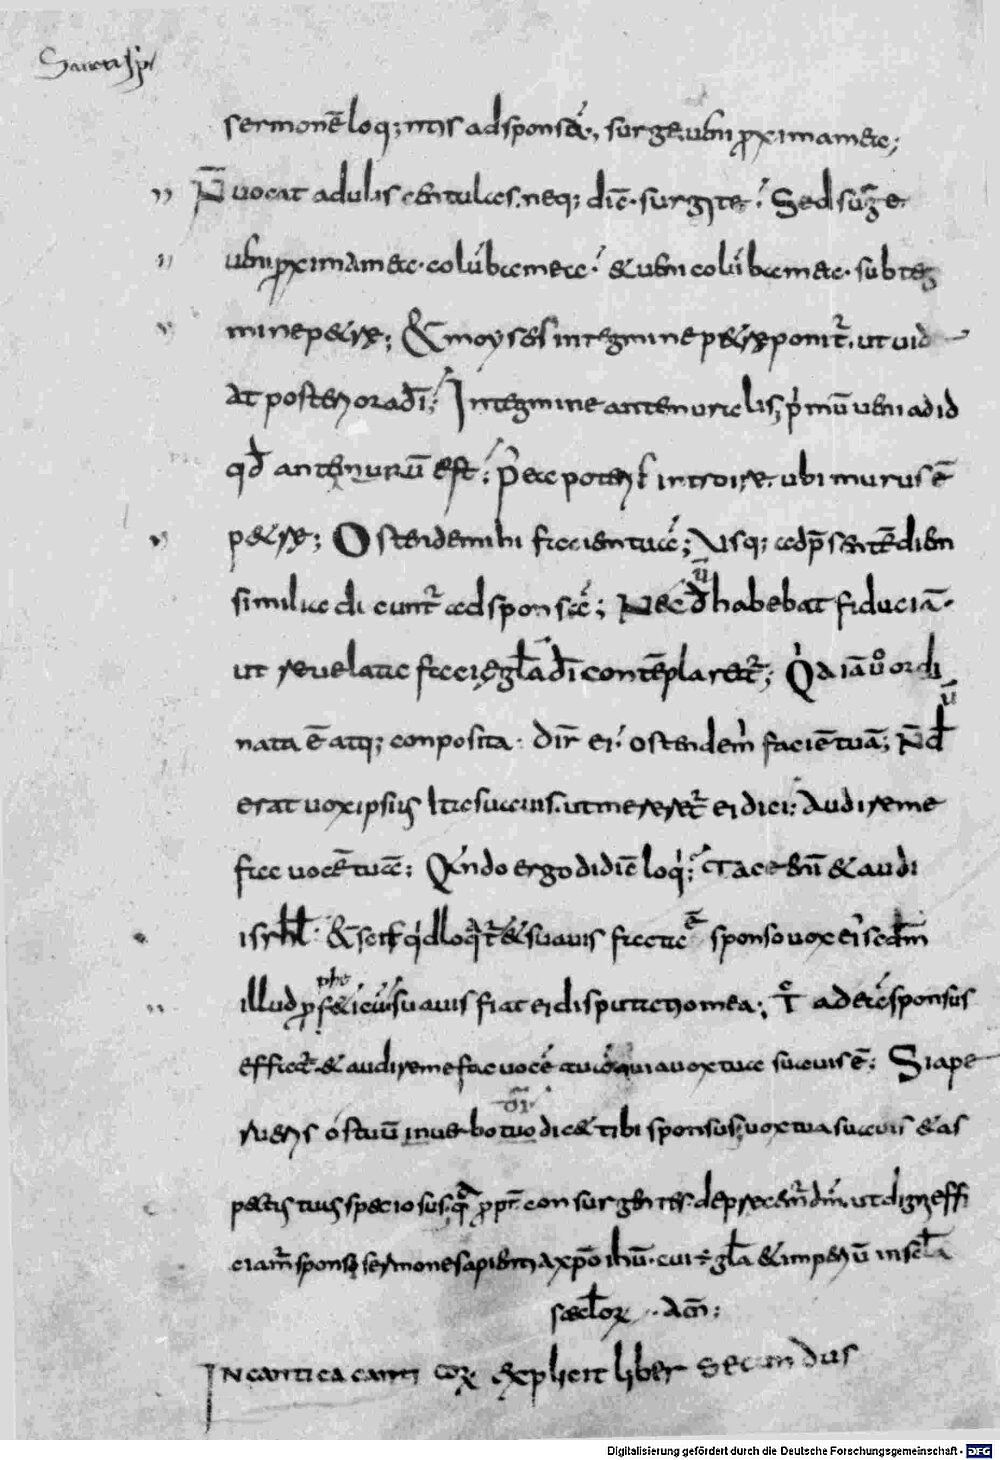 Sancti Sp
sermonē loq;ntis ad sponsā, surge ueni ꝓxima mea;
N̄ uocat a dulis centulas. neq; dic̄. surgite. Sed surge
ueni ꝓxima mea. colūba mea. & ueni colūba mea. sub teg
mine petre; & moyses in tegmine petre ponit̄. ut uid
at posteriora dī; In tegmine antemuralis, primū ueni ad id
qd̄ antemurū est; p ea poteris introire. ubi murus ē
petre; Ostende mihi faciem tuā; Usq; ad p̄sentē diem
similia dicunt̄ ad sponsā; Nec dū habebat fiduciā.
ut reuelata facie glā dī contēplaret̄; Qa iā uo ordi
nata ē atq; composita. dir ei. ostende m faciē tuā; N̄ dū
erat uox ipsius ita suauis. ut mereret̄ ei dici. Audire me
fac uocē tuā; Qndo ergo didic̄ loqi; Tace enī & audi
isrhl. & scit qd loqt̄ & suauis facta ē sponso uox ei secdm
illud ꝓphe&icū suauis fiat ei disputatio mea; T ad eā sponsus
efficit̄ & audire me fac uocē tuā quia uox tua suauis ē; Si ape
rueris os tuū in uerbo tuo dī dic& tibi sponsus. uox tua suauis & as
pectus tuus speciosus. qa ꝓpt consurgentes. deprecem dm. ut digni effi
ciam sponso sermone sapientia xpo ihū. cui ÷ glā & imperiū in scla
saeclorum. Am;
In cantica canticorum explicit liber secundus
Digitalisierung gefördert durch die Deutsche Forschungsgemeinschaft - DFG